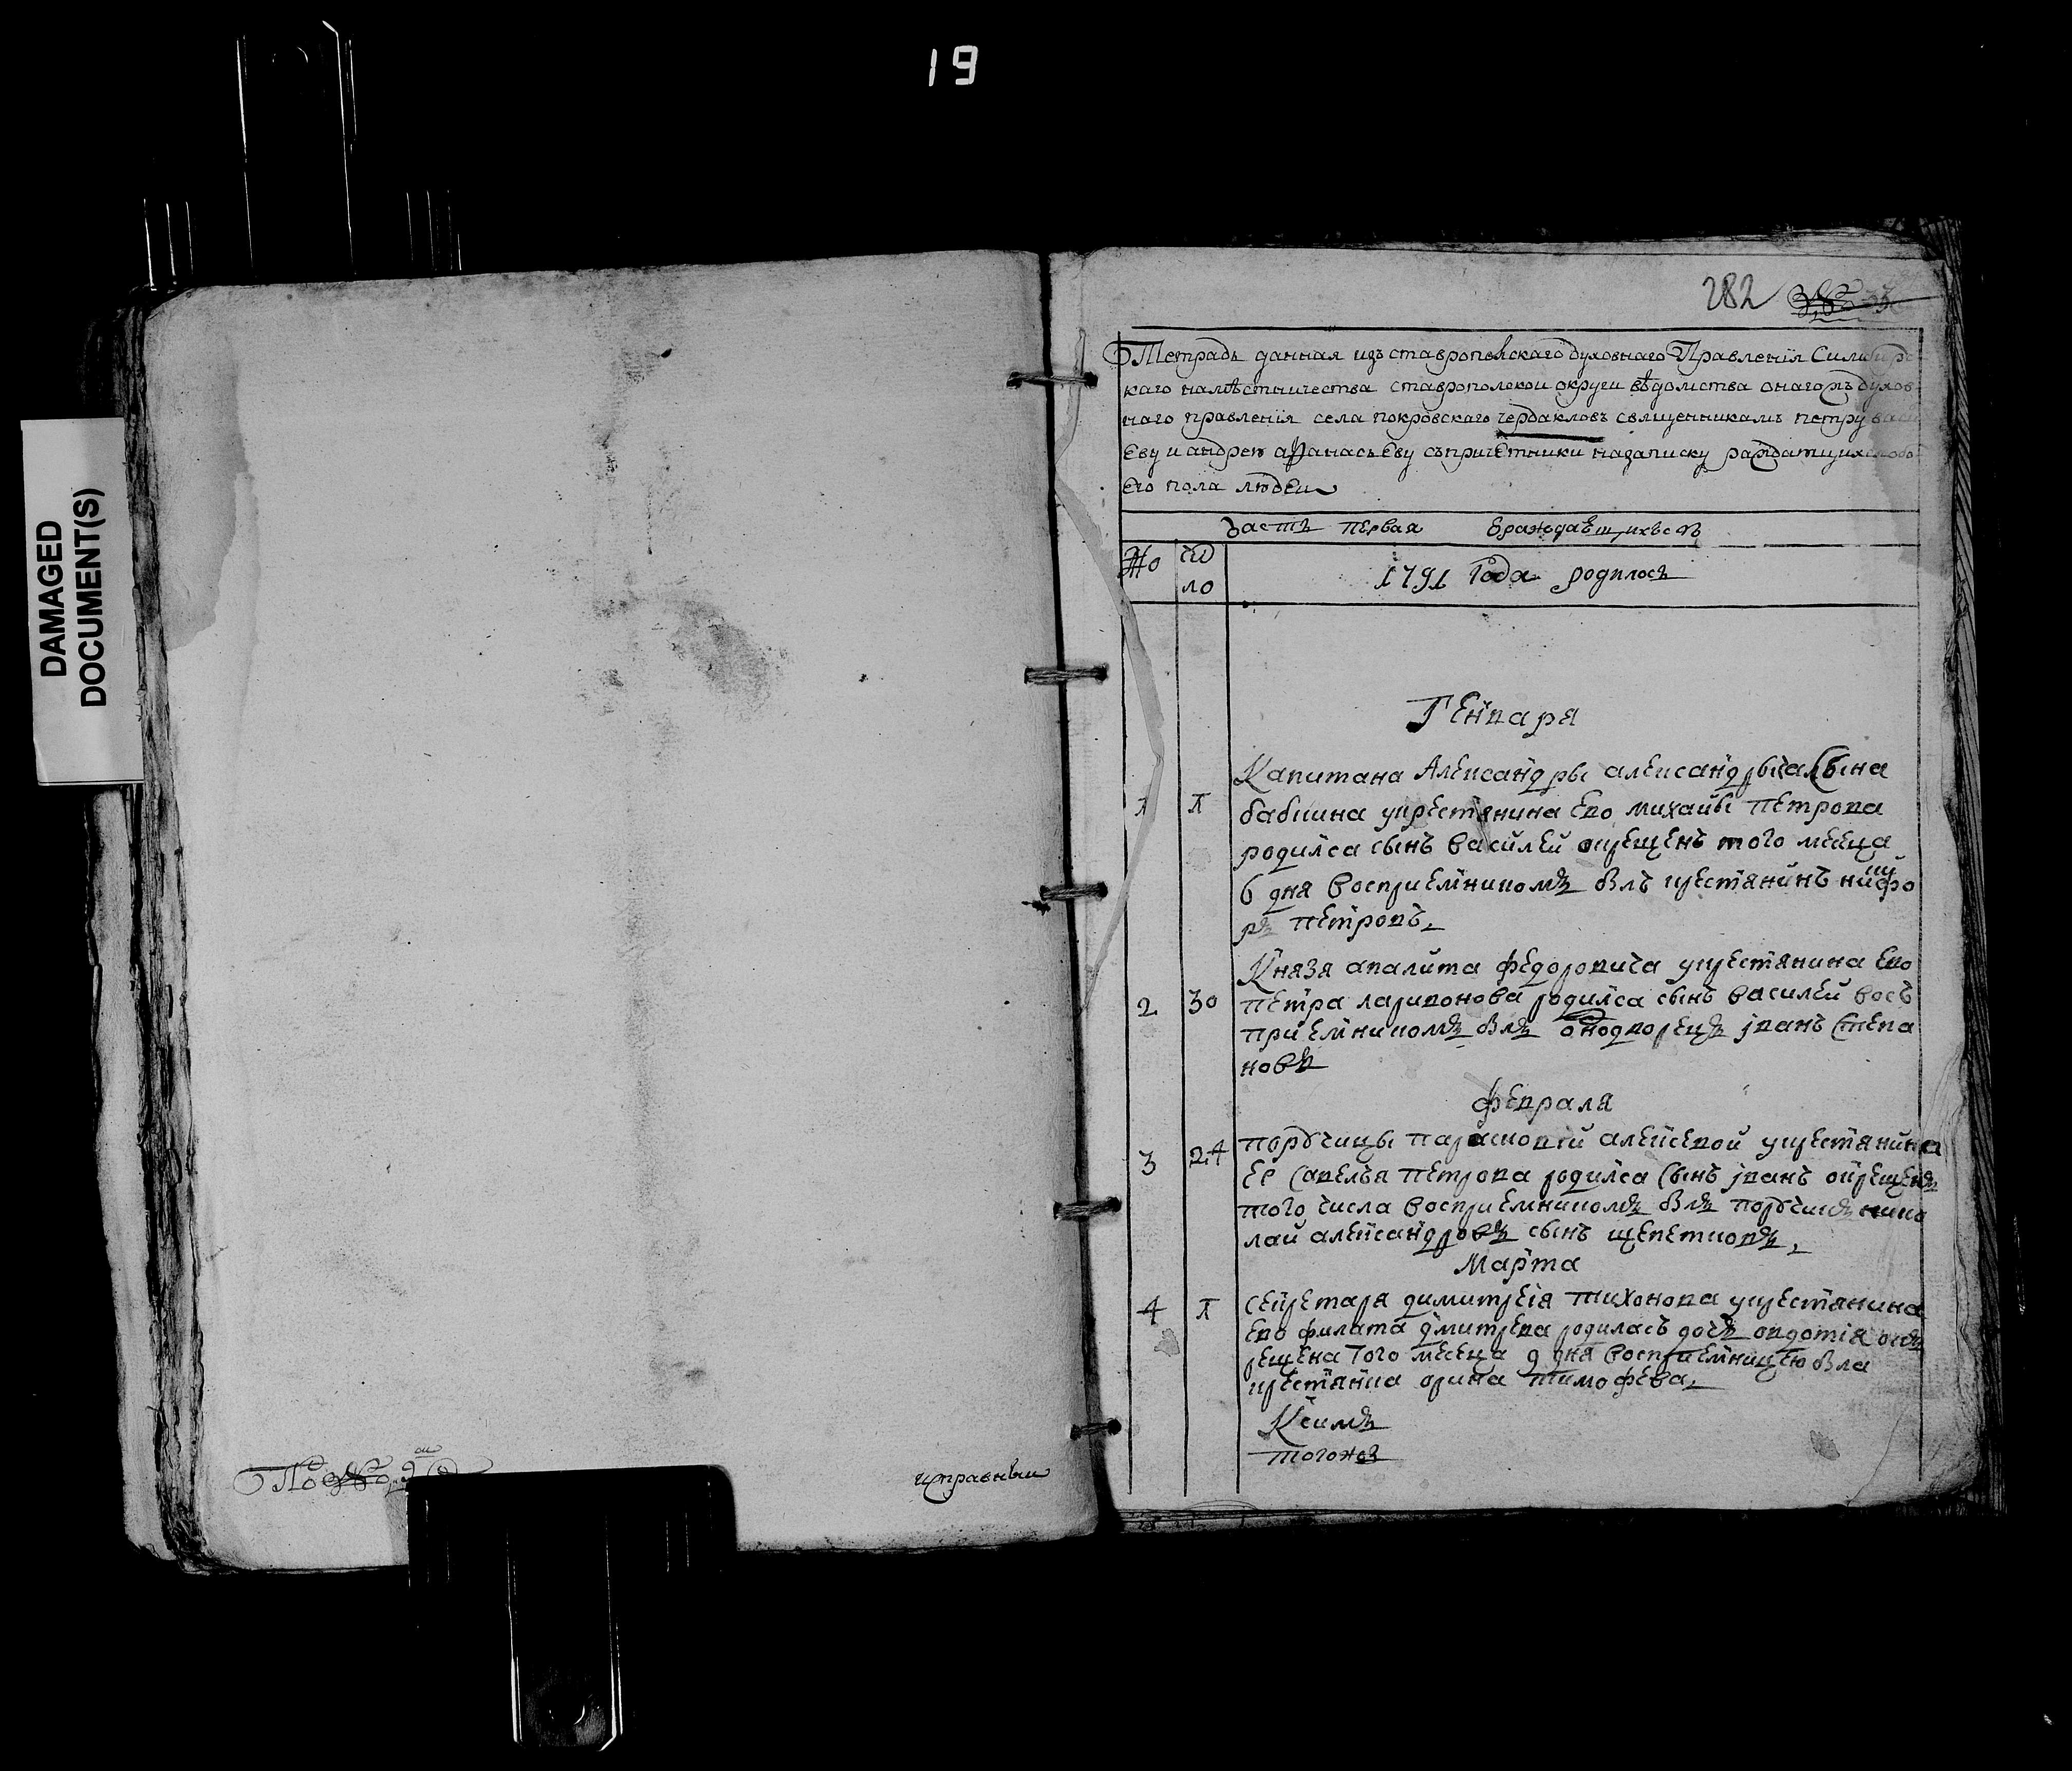 19
DAMAGED
DOCUMENT(S)
282
Тетрадь данная изъ ставропольскаго духовнаго Правленїя Симбирс
каго намѣстничества ставрополской округи вѣдомства онагожъ духов
наго правленїя села покровскаго чердакловъ священникамъ петру васи
еву и андрею афанасьеву съпричетники назаписку раждатщихся обо
его пола людеи
Часть первая о раждаещихъся
№ чис
ло
1791 года родилось
Генваря
Капитана Александры александрыча сына
1 1 бабкина укрестянина ево михаилы петрова
родился сынъ василей окрещенъ того месеца
6 дня восприемникомъ былъ крестянинъ никифо
ръ петровъ
Князя апалита федоровича укрестянина ево
2 30 петра ларивонова родился сынъ василей вось
приемникомъ былъ однодворецъ iванъ степа
новъ
февраля
порутчицы парасковьи алексевой укрестянина
3 24 ее савелья петрова родился сынъ iванъ окрещенъ
того числа восприемникомъ былъ порутчикъ нико
лай александровъ сынъ щепетковъ
Марта
4 1 секретаря димитрея тихонова укрестянина
ево филата дмитрева родиласъ дочь овдотiя окъ
рещена того месеца 9 дня восприемницею была
крестянка орина тимофева
Ксимъ
тогожъ
По
исправный